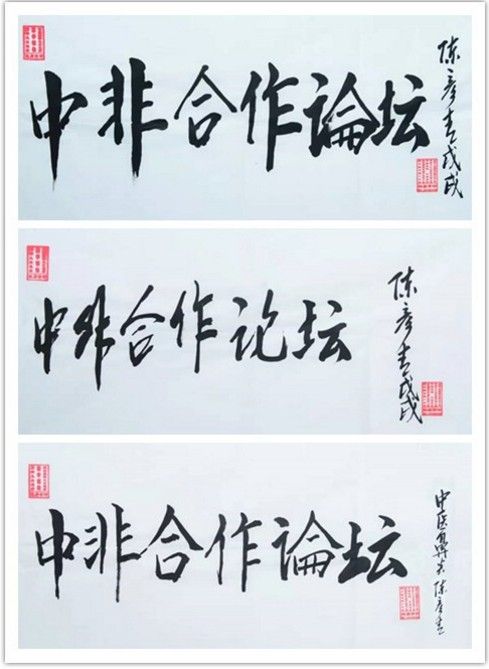 中非合作論坛
陈彦青戊戌
中非合作论坛
陈彦青戊戌
中非合作論坛
中医 陈彦青